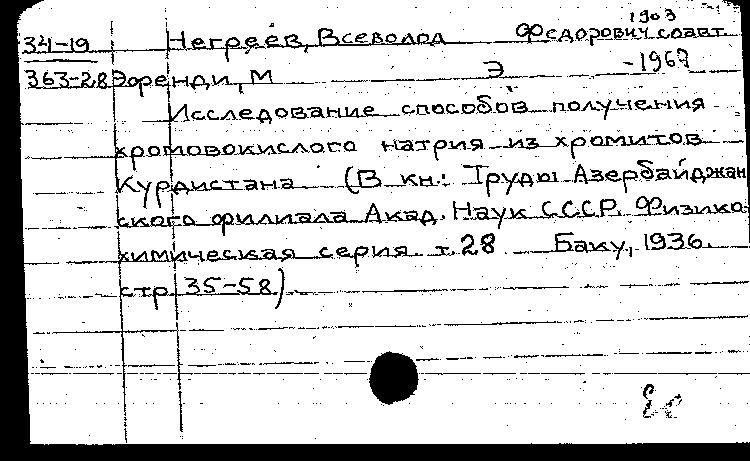 1903
34-19 Негреев, Всеволод Федорович соавт.
363-28 Эфенди, М Э -1967
Исследование способов получения
хромовокислого натрия из хромитов
Курдистана (В кн.: Труды Азербайджан
ского филиала Акад. Наук СССР. Физико-
химическая серия. т. 28 Баку, 1936.
стр. 35-58)